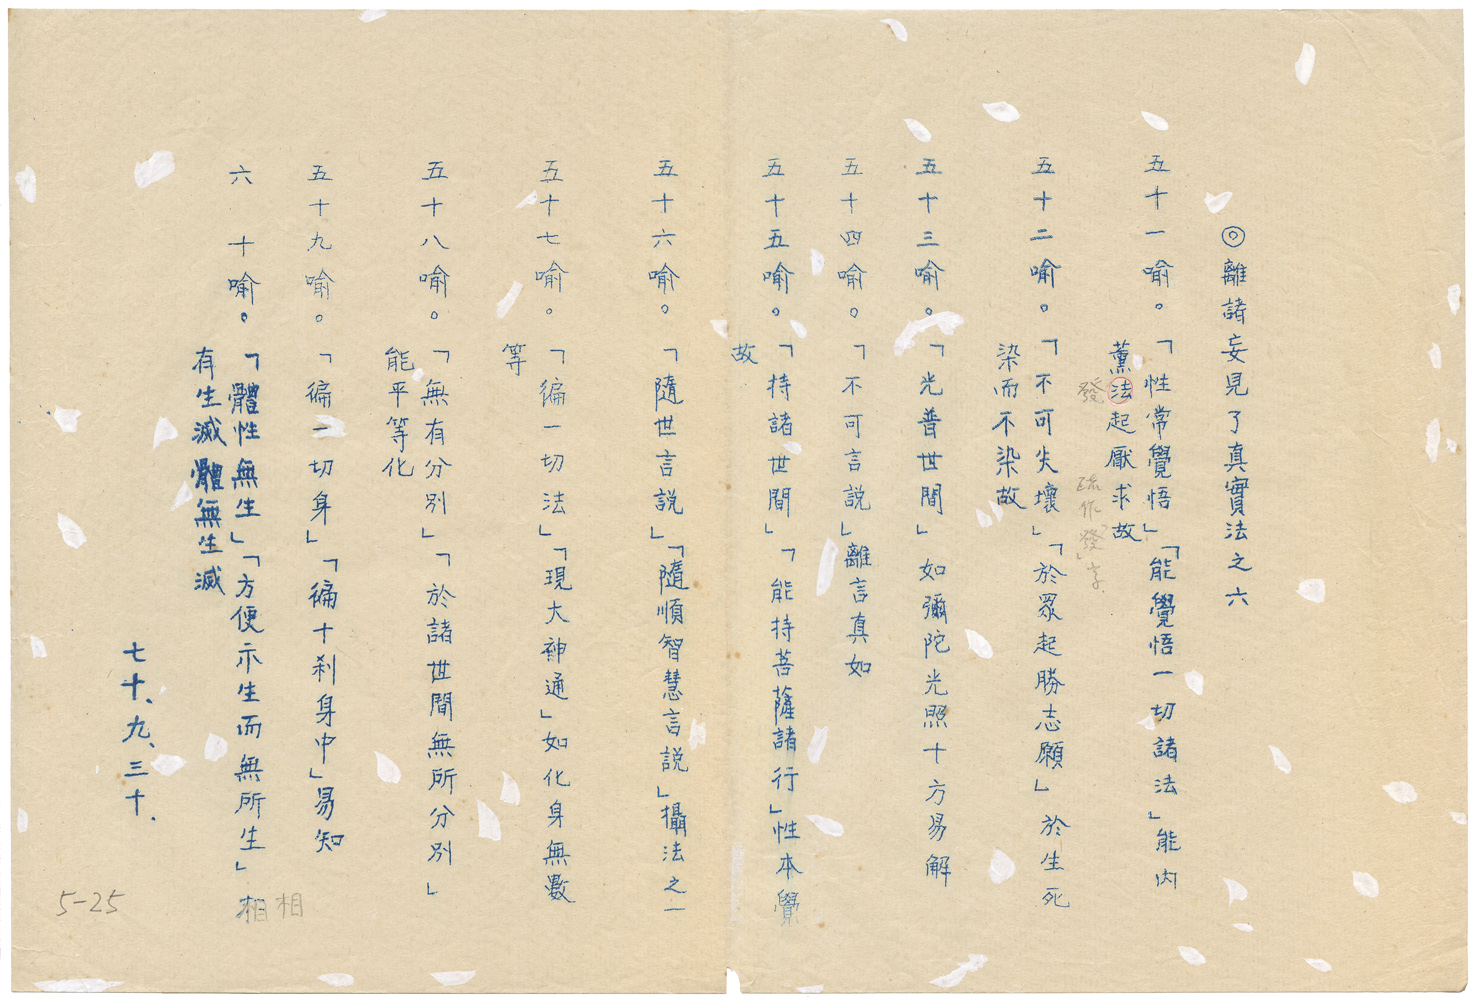 ◎離諸妄見了真實法之六
五十一喻。「性常覺悟」「能覺悟一切諸法」能內
薰法起厭求故
發 疏作「發」字
五十二喻。「不可失壞」「於眾起勝志願」於生死
染而不染故
五十三喻。「光普世間」如彌陀光照十方易解
五十四喻。「不可言説」離言真如
五十五喻。「持諸世間」「能持菩薩諸行」性本覺
故
五十六喻。「隨世言説」「隨順智慧言説」攝法之一
五十七喻。「徧一切法」「現大神通」如化身無數
等
五十八喻。「無有分別」「於諸世間無所分別」
能平等化
五十九喻。「徧一切身」「徧十刹身中」易知
六十喻。「體性無生」「方便示生而無所生」相
相
有生滅體無生滅
七十、九、三十、
5-25